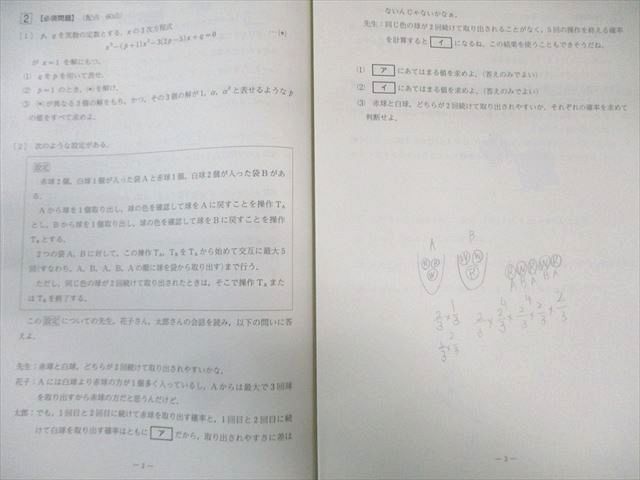 2 【必須問題】 (配点 60点)
〔1〕 p, q を実数の定数とする. x の3次方程式
x³-(p+1)x²-3(2p-5)x+q=0 …(*)
が x=1 を解にもつ.
(1) q を p を用いて表せ.
(2) p=1 のとき, (*)を解け.
(3) (*)が異なる3個の解をもち, かつ, その3個の解が1, α, α² と表せるような p
の値をすべて求めよ.
〔2〕 次のような設定がある.
設定
赤球2個, 白球1個が入った袋Aと赤球1個, 白球2個が入った袋Bがあ
る.
Aから球を1個取り出し, 球の色を確認して球をAに戻すことを操作 T_A
とし, Bから球を1個取り出し, 球の色を確認して球をBに戻すことを操作
T_B とする.
2つの袋A, Bに対して, この操作 T_A, T_B を T_A から始めて交互に最大5
回(すなわち, A, B, A, B, Aの順に球を袋から取り出す)まで行う.
ただし, 同じ色の球が2回続けて取り出されたときは, そこで操作 T_A また
は T_B を終了する.
この 設定 についての先生, 花子さん, 太郎さんの会話を読み, 以下の問いに答
えよ.
先生:赤球と白球, どちらが2回続けて取り出されやすいかな.
花子:Aには白球より赤球の方が1個多く入っているし, Aからは最大で3回球
を取り出すから赤球の方だと思うんだけど.
太郎:でも, 1回目と2回目に続けて赤球を取り出す確率と, 1回目と2回目に続
けて白球を取り出す確率はともに ア だから, 取り出されやすさに差は
— 2 —
ないんじゃないかなぁ.
先生:同じ色の球が2回続けて取り出されることがなく, 5回の操作を終える確率
を計算すると イ になるね. この結果を使うこともできそうだね.
(1) ア にあてはまる値を求めよ. (答えのみでよい)
(2) イ にあてはまる値を求めよ. (答えのみでよい)
(3) 赤球と白球, どちらが2回続けて取り出されやすいか, それぞれの確率を求めて
判断せよ.
A B
— 3 —